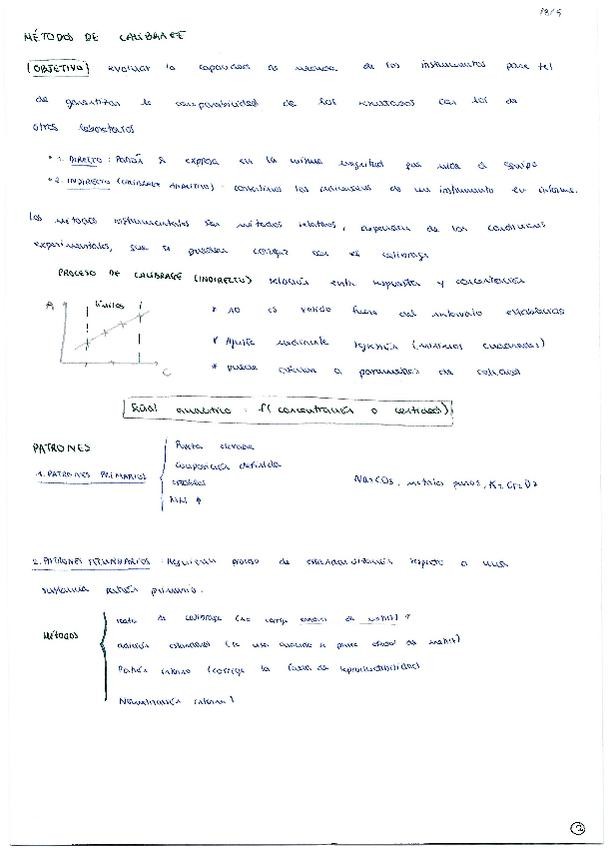 18/5
MÉTODOS DE CALIBRAGE
OBJETIVO evaluar la capacidad de medida de los instrumentos para tal
de garantizar la comparabilidad de los resultados con los de
otros laboratorios
* 1. DIRECTO: Patrón se expresa en la misma magnitud que mide el equipo
* 2. INDIRECTO (CALIBRAGE ANALITICO): de un instrumento en
Los métodos instrumentales son métodos relativos, dependen de las condiciones
experimentales, que se pueden corregir con el calibrage
PROCESO DE CALIBRAGE (INDIRECTO) relación entre respuesta y concentración
A límites * no es valido fuera del intervalo establecido
* Ajuste mediante regresión (mínimos cuadrados)
C * parametros de calidad
Señal analitica = f(concentración o cantidad)
PATRONES
1. PATRONES PRIMARIOS
Pureza elevada
composición definida
estables
MM ↑
metales puros,
2. PATRONES SECUNDARIOS: Requieren proceso de estandarización respecto a una
sustancia patrón primario.
Métodos
recta de calibrage (no corrige efecto de matriz)
adición estandard (se usa cuando se puede efecto de matriz)
Patrón interno (corrige la falta de reproductibilidad)
Normalización interna
2